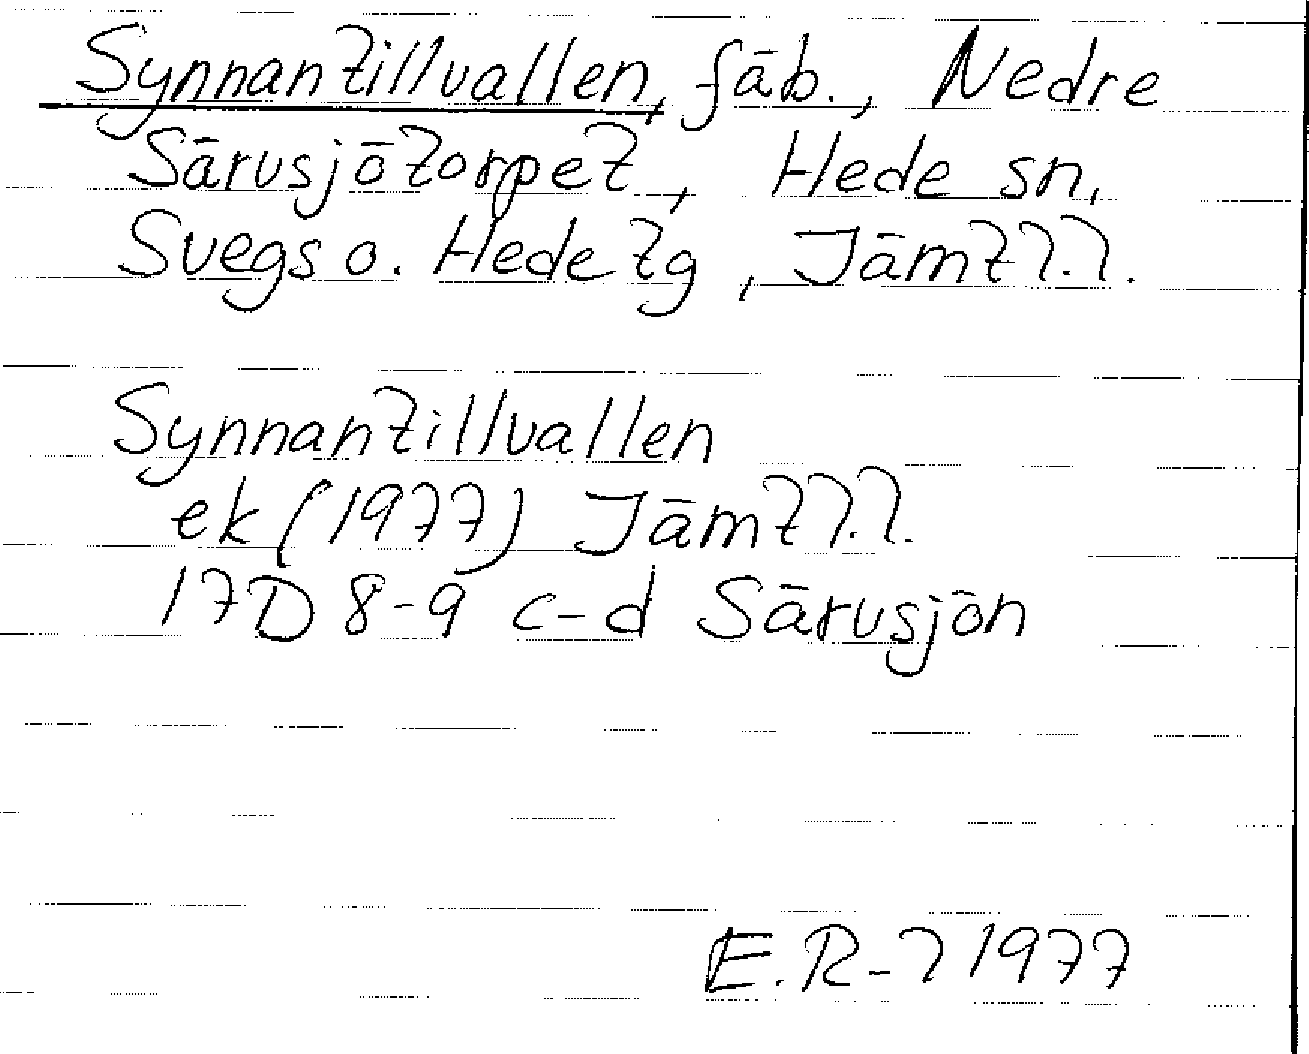 Synnantillvallen, fäb., Nedre
Särvsjötorpet, Hede sn,
Svegs o. Hede tg, Jämtl.l.
Synnantillvallen
ek (1977) Jämtl.l.
17D 8-9 c-d Särvsjön
1977